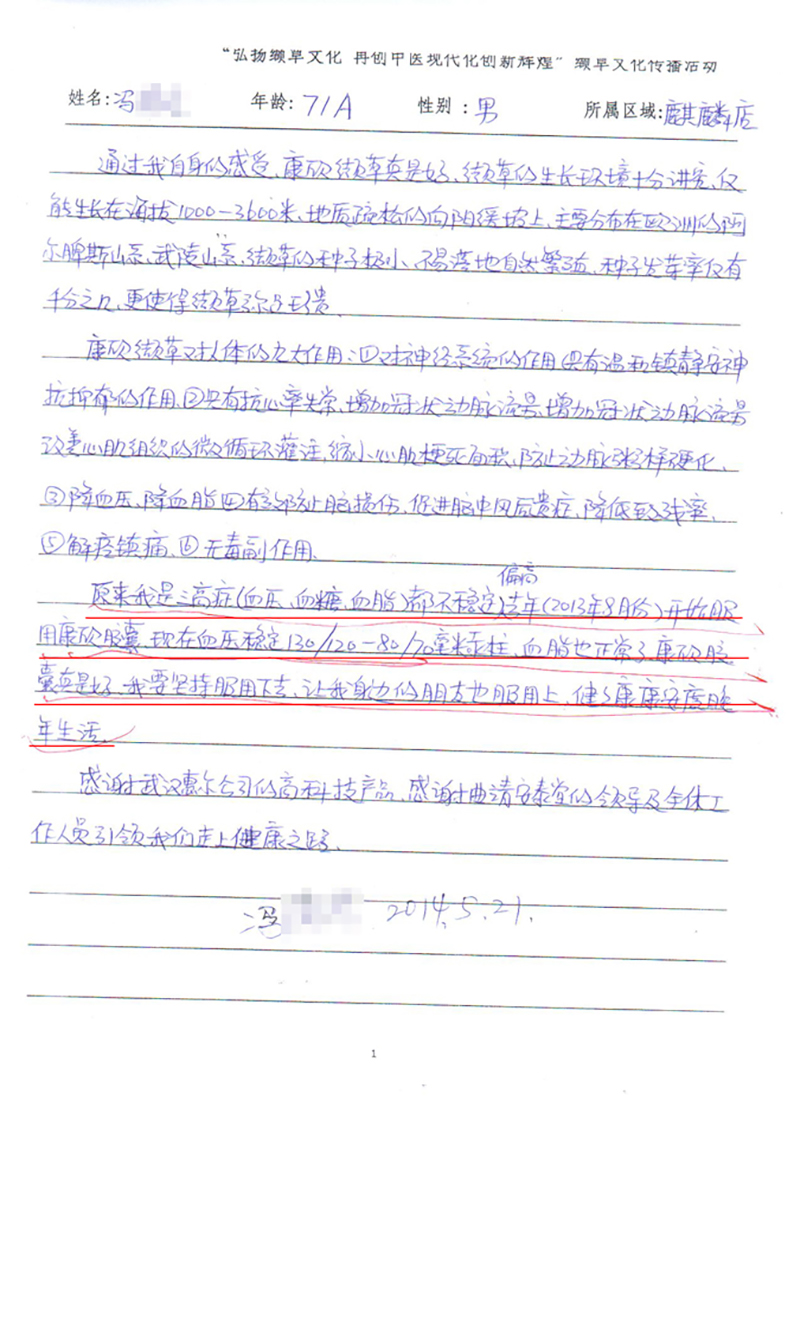 “弘扬缬草文化 再创中医现代化创新辉煌” 缬草文化传播活动
姓名:冯 年龄:71A 性别:男 所属区域:麒麟店
通过我自身的感受、康欣缬草真是好、缬草的生长环境十分讲究、仅
能生长在海拔1000-3600米、地质疏松的向阳缓坡上、主要分布在欧洲的阿
尔脾斯山系、武陵山系、缬草的种子极小、不易落地自然繁殖、种子发芽率仅有
千分之几、更使得缬草弥足珍贵、
康欣缬草对人体的九大作用:①对神经系统的作用(具有温和镇静安神
抗抑郁的作用、②具有抗心率失常、增加冠状动脉流量、增加冠状动脉流量
改善心肌组织的微循环灌注,缩小心肌梗死面积,防止动脉粥样硬化、
③降血压、降血脂四有效防止脑损伤、促进脑中风后遗症、降低致残率、
⑤解痉镇痛、⑥无毒副作用、
偏高
原来我是三高症(血压、血糖、血脂)都不稳定)去年(2013年9月份)开始服
用康欣胶囊、现在血压稳定130/120-80/70毫米汞柱、血脂也正常了康欣胶
囊真是好、我要坚持服用下去、让我身边的朋友也服用上、健健康康安度晚
年生活、
感谢武汉惠尔公司的高科技产品、感谢曲靖安泰堂的领导及全体工
作人员引领我们走上健康之路、
冯 2014.5.21.
1